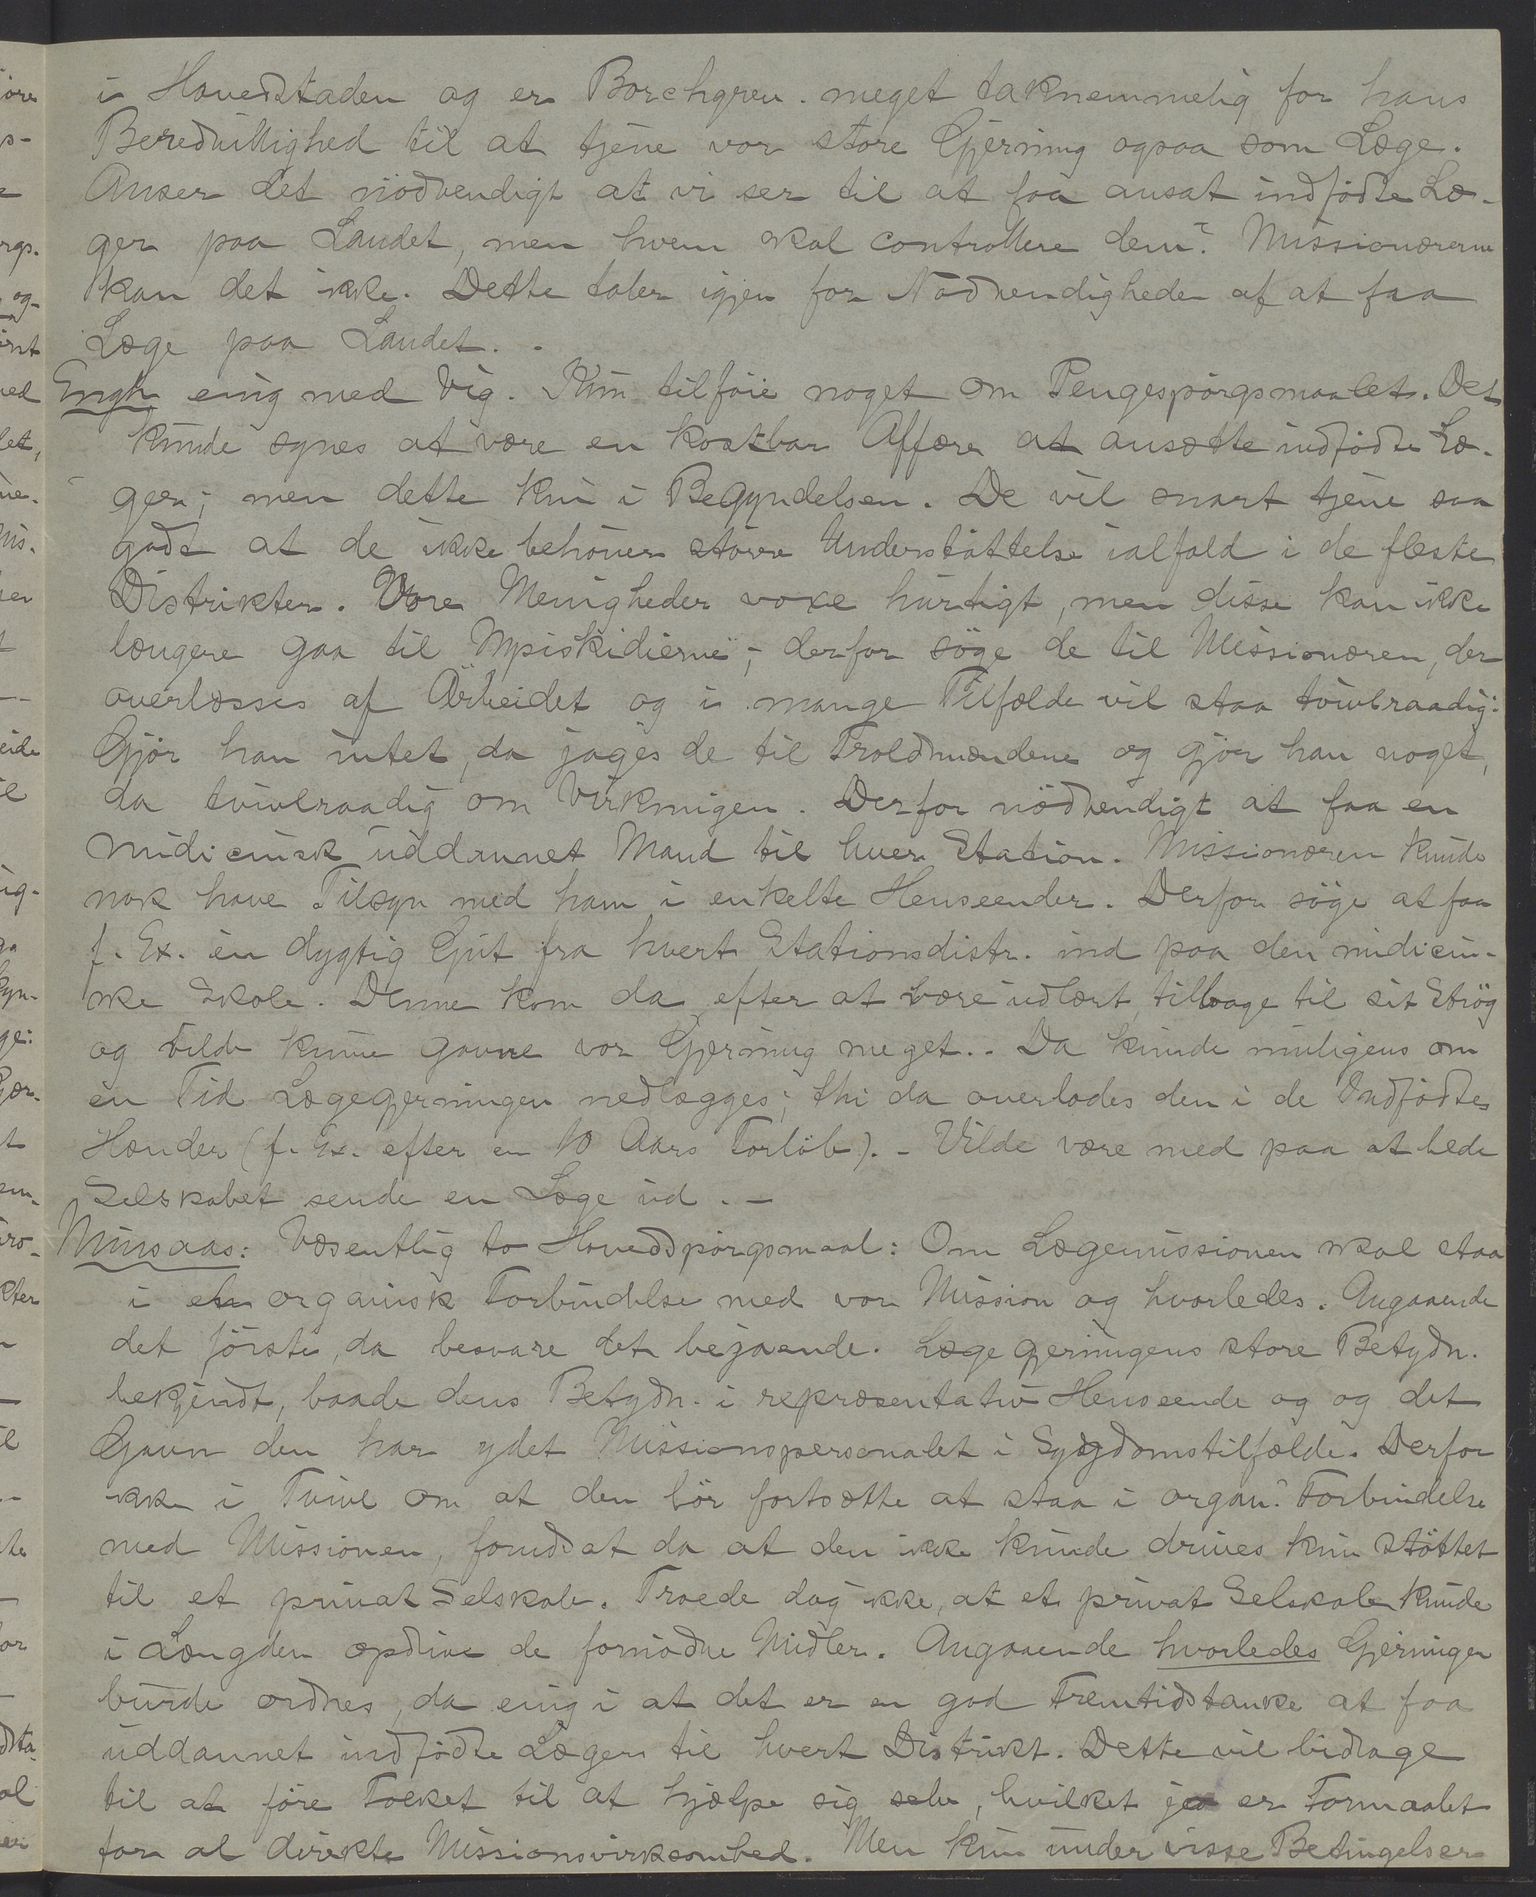 i Hovedstaden og er Borchgrev. meget taknemmelig for hans
Beredvillighed til at tjene vor store Gjerning ogsaa som Læge.
Anser det nödvendigt at vi ser til at faa ansat indfödte Læ-
ger paa Landet, men hvem skal controllere dem? Missionærerne
kan det ikke. Dette taler igjen for Nödvendigheden af at faa
Læge paa Landet. -
Engh enig med Vig. Kun tilföie noget om Pengespörgsmaalet. Det
kunde synes at være en kostbar Affære at ansætte indfödte Læ-
ger; men dette kun i Begyndelsen. De vil snart tjene saa
godt at de ikke behöver större Understöttelse ialfald i de fleste
Distrikter. Vore Menigheder voxe hurtigt, men disse kan ikke
længere gaa til Mpisikidierne; derfor söge de til Missionæren, der
overlæsses af Arbeidet og i mange Tilfælde vil staa tvivlraadig:
Gjör han intet, da jages de til Troldmændene og gjör han noget,
da tvivlraadig om Virkningen. Derfor nödvendigt at faa en
midicinsk uddannet Mand til hver Station. Missionæren kunde
nok have Tilsyn med ham i enkelte Henseender. Derfor söge at faa
f. Ex. en dygtig Gut fra hvert Stationsdistr. ind paa den midicin-
ske Skole. Denne kom da efter at være udlært tilbage til sit Strög
og vilde kunne gavne vor Gjerning meget.. Da kunde muligens om
en Tid Lægegjerningen nedlægges; thi da overlodes den i de Indfödtes
Hænder (f. Ex. efter en 10 Aars Forlöb). - Vilde være med paa at bede
Selskabet sende en Læge ud. -
Minsaas: Væsentlig to Hovedspörgsmaal: Om Lægemissionen skal staa
i en organisk Forbindelse med vor Mission og hvorledes. Angaaende
det förste, da besvare det bejaende. Lægegjerningens store Betydn.
bekjendt, baade dens Betydn. i repræsentativ Henseende og og det
Gavn den har ydet Missionspersonalet i Sygdomstilfælde. Derfor
ikke i Tvivl om at den bör fortsætte at staa i organ. Forbindelse
med Missionen, forudsat da at den ikke kunde drives kun stöttet
til et privat Selskab. Troede dog ikke, at et privat Selskab kunde
i Længden opdrive de fornödne Midler. Angaaende hvorledes Gjerningen
burde ordnes, da enig i at det er en god Fremtidstanke at faa
uddannet indfödte Læger til hvert Distrikt. Dette vil bidrage
til at före Folket til at hjælpe sig selv, hvilket jo er Formaalet
for al direkte Missionsvirksomhed. Men kun under visse Betingelser